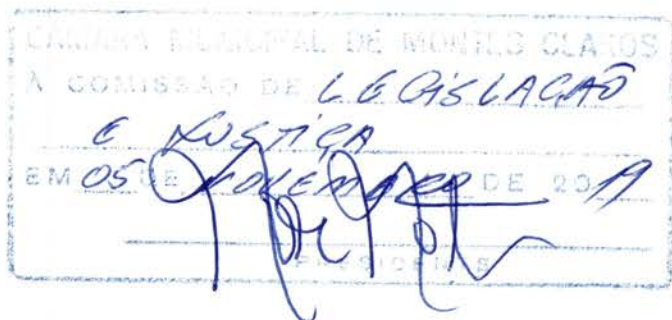 CÂMARA MUNICIPAL DE MONTES CLAROS
À COMISSÃO DE LEGISLAÇÃO
E JUSTIÇA
EM 05 DE NOVEMBRO DE 2019
PRESIDENTE